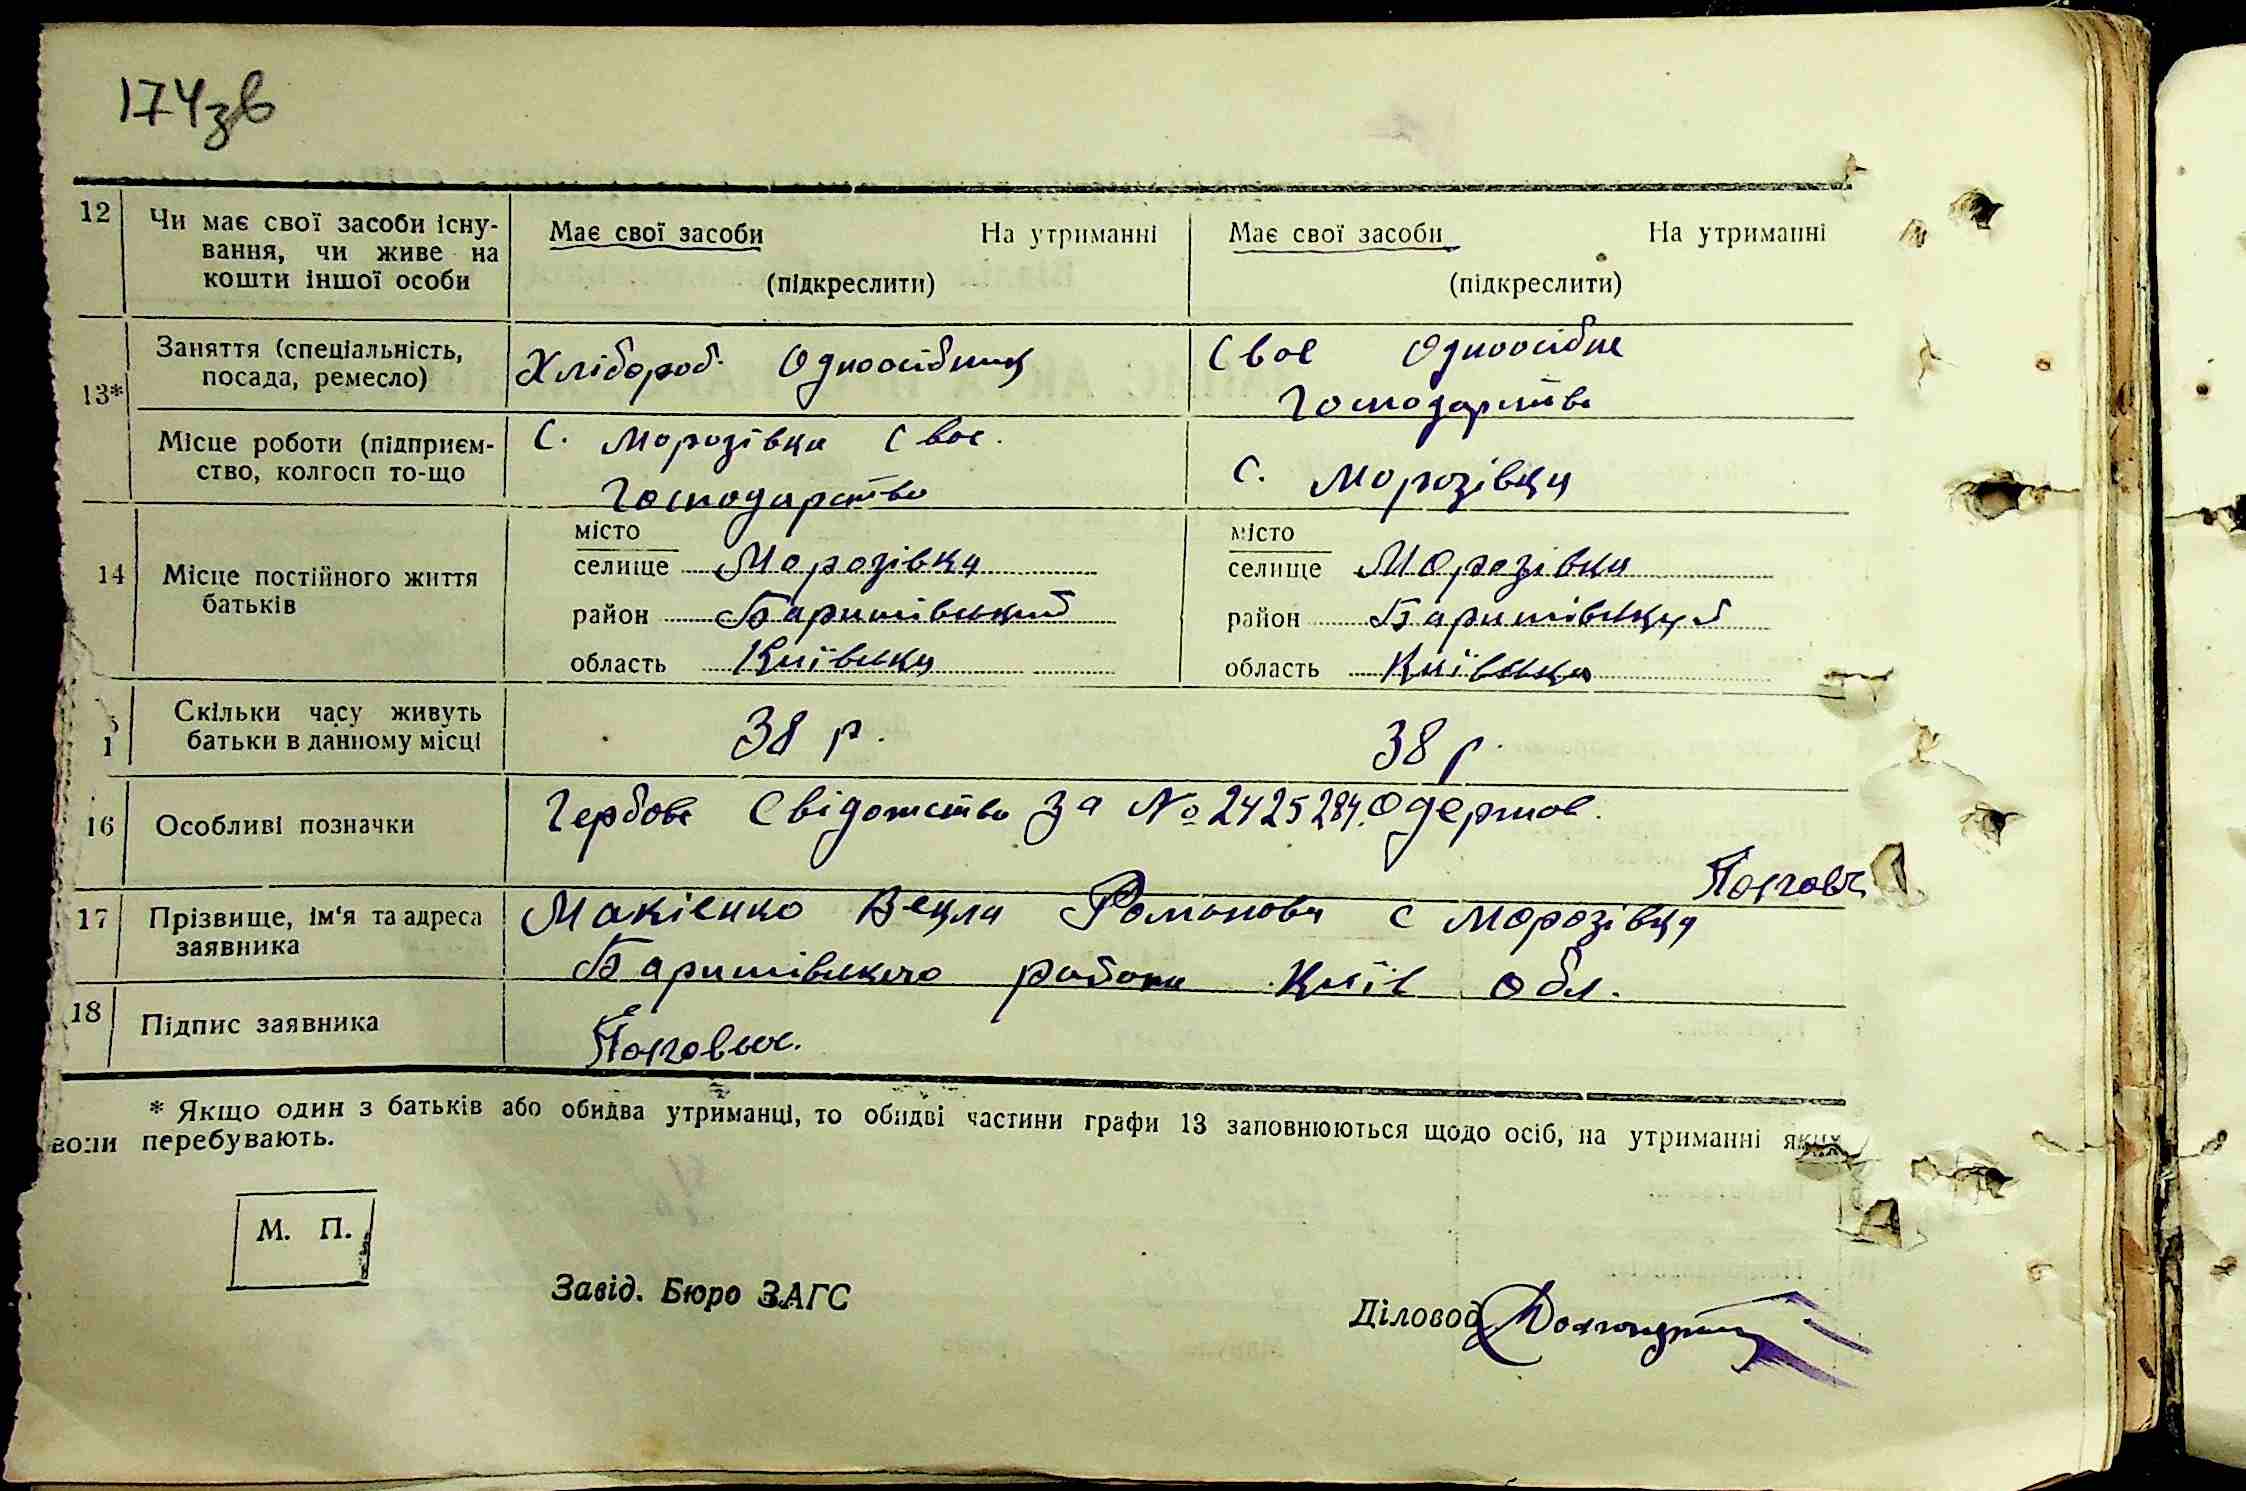 174зв
12 Чи має свої засоби існу- Має свої засоби На утриманні Має свої засоби На утриманні
вання, чи живе на
кошти іншої особи (підкреслити) (підкреслити)
Заняття (спеціальність, Хлібороб Одноосібник Своє Одноосібне
посада, ремесло) Господарство
13*
Місце роботи (підприєм- С. Морозівка Своє
ство, колгосп то-що Господарство С. Морозівка
місто місто
14 Місце постійного життя селище Морозівка селище Морозівка
батьків район Баришівський район Баришівський
область Київська область Київська
Скільки часу живуть 38 р. 38 р.
1 батьки в данному місці
16 Особливі позначки Гербове Свідотство За № 2425284. Одержов.
17 Прізвище, ім'я та адреса Макієнко Векла Романова с Морозівка
заявника Баришівського району Київ Обл.
18 Підпис заявника
* Якщо один з батьків або обидва утриманці, то обидві частини графи 13 заповнюються щодо осіб, на утриманні яких
вони перебувають.
М. П.
Завід. Бюро ЗАГС Діловод